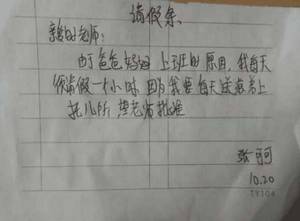 请假条
亲爱的老师：
由于爸爸妈妈 上班的原因，我每天
请假一小时，因为我要每天送弟弟上
托儿所，望老师批准
张
10.20